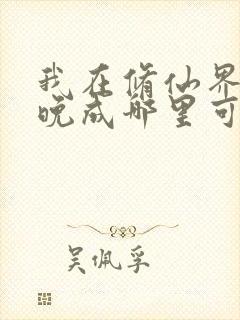 我在修仙界
晚成哪里可
吴佩孚